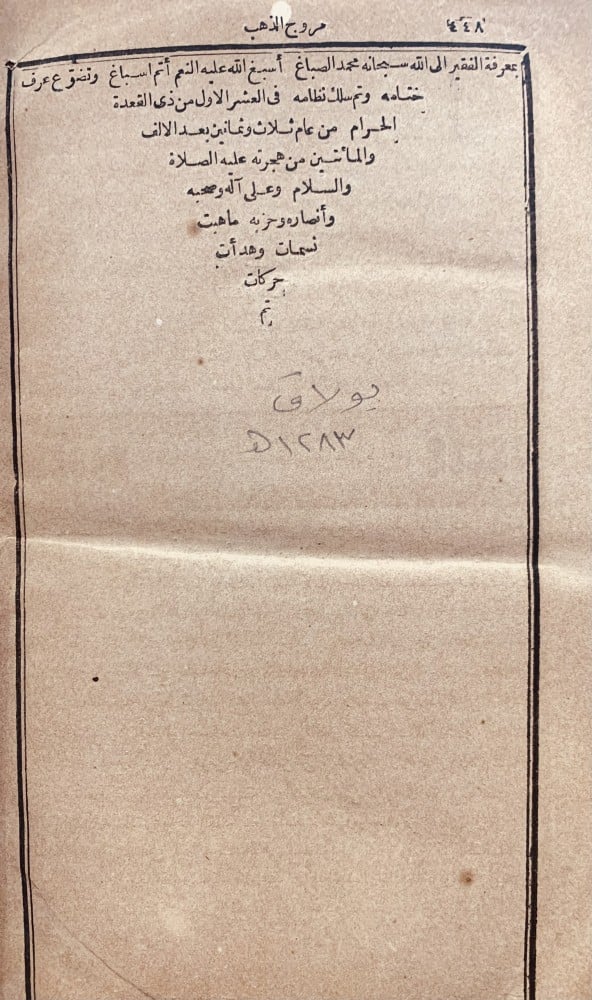 ٤٤٨ مروج الذهب
بمعرفة الفقير الى الله سبحانه محمد الصباغ أسبغ الله عليه النعم أتم اسباغ وتضوّع عرف
ختامه وتم سلك نظامه فى العشر الاول من ذى القعدة
الحرام من عام ثلاث وثمانين بعد الالف
والمائتين من هجرته عليه الصلاة
والسلام وعلى آله وصحبه
وأنصاره وحزبه ماهبت
نسمات وهدأت
حركات
تم
بولاق
١٢٨٣هـ